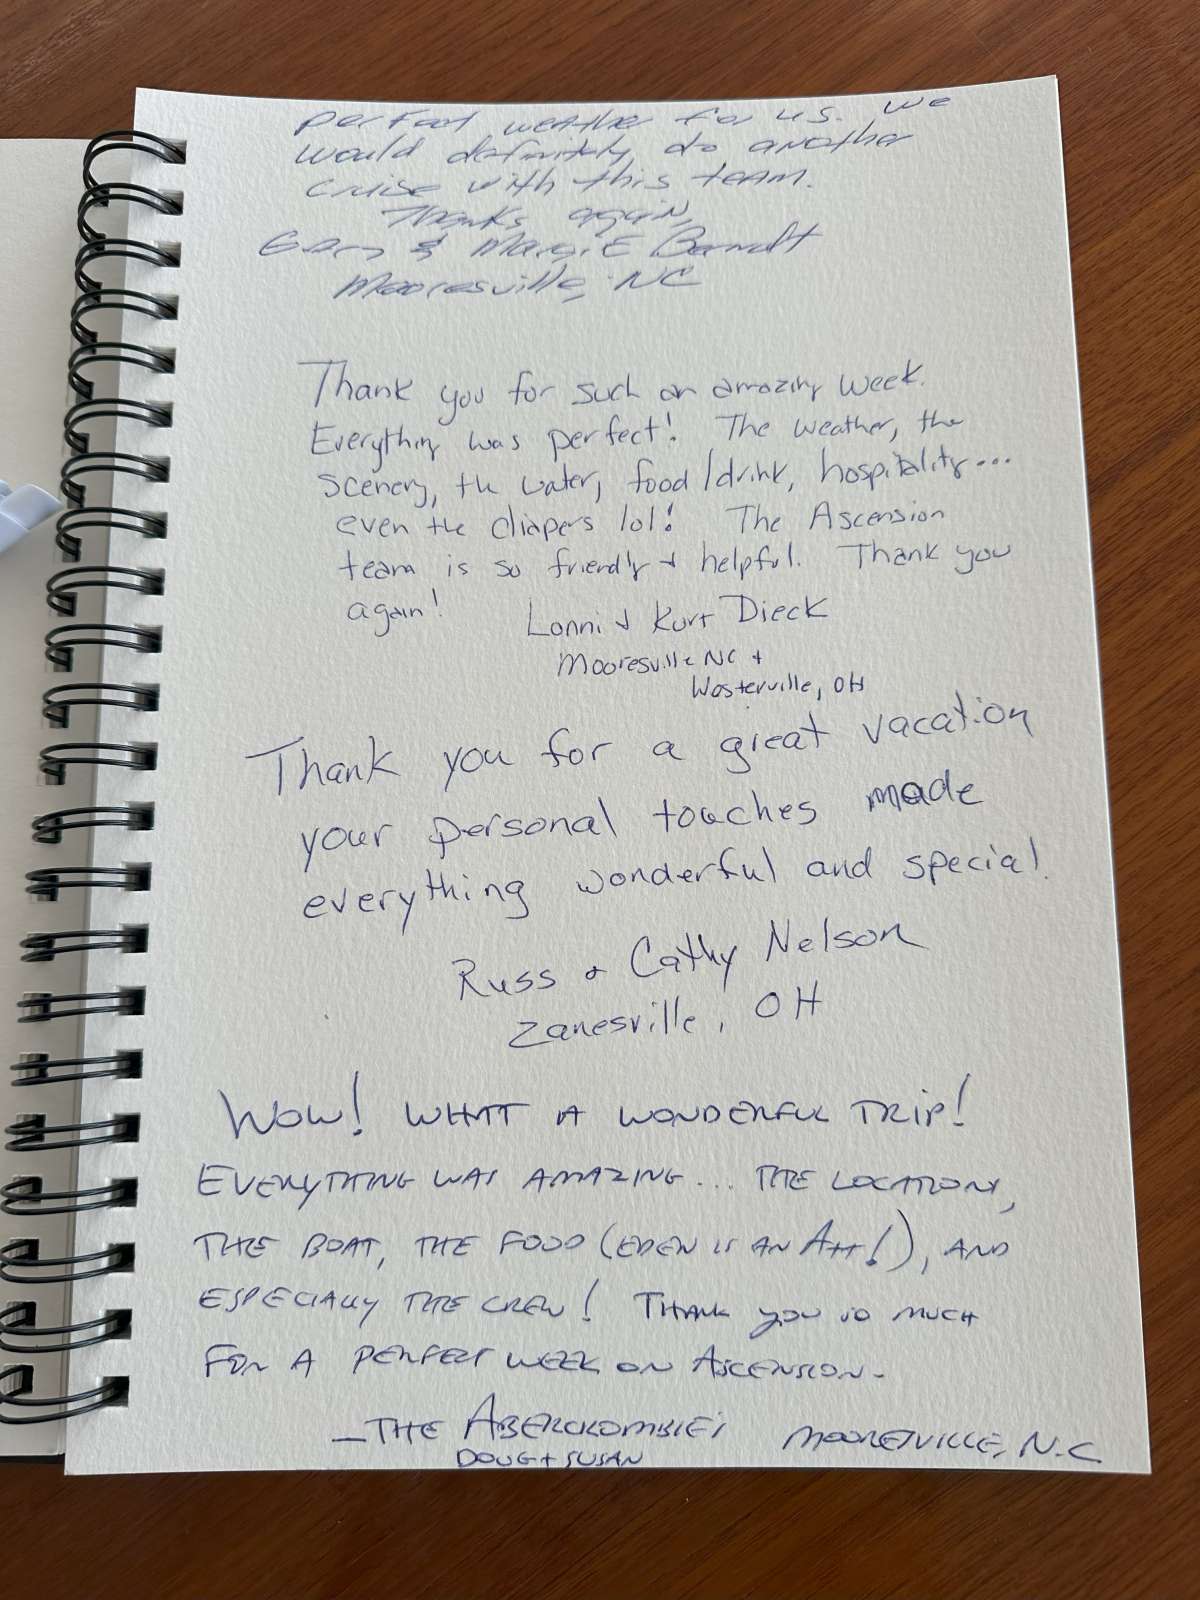 perfect weather for us. We
would definitely do another
cruise with this team.
Thanks again,
Gary & Margie Berndt
Mooresville, NC
Thank you for such an amazing week.
Everything was perfect! The weather, the
scenery, the water, food/drink, hospitality...
even the diapers lol! The Ascension
team is so friendly + helpful. Thank you
again!
Lonni + Kurt Dieck
Mooresville NC +
Westerville, OH
Thank you for a great vacation
your personal touches made
everything wonderful and special.
Russ + Cathy Nelson
Zanesville, OH
WOW! WHAT A WONDERFUL TRIP!
EVERYTHING WAS AMAZING... THE LOCATIONS,
THE BOAT, THE FOOD (EDEN IS AN A++!), AND
ESPECIALLY THE CREW! THANK YOU SO MUCH
FOR A PERFECT WEEK ON ASCENSION.
—THE ABERCROMBIE'S MOORESVILLE, N.C
DOUG + SUSAN